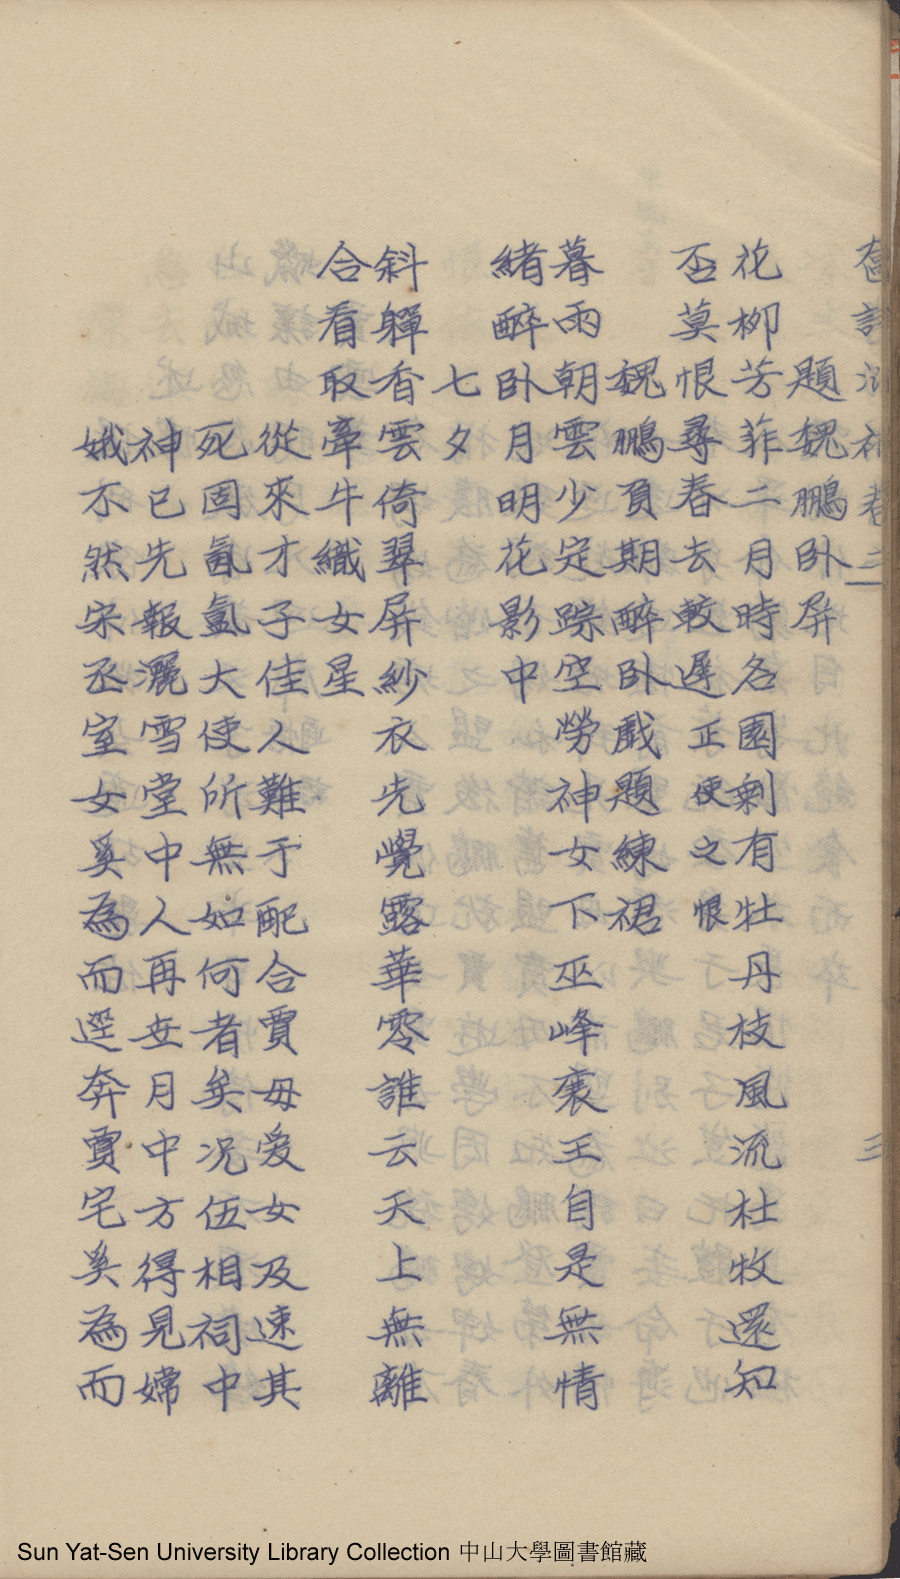 舊詩沿袖卷三 三
題魏鵬臥屏
花柳芳菲二月時各園剩有牡丹枝風流杜牧還知
否莫恨尋春去較遲正便之恨
魏鵬負期醉臥戲題練裙
暮雨朝雲少定踪空勞神女下巫峰襄王自是無情
緒醉臥月明花影中
七夕
斜軃香雲倚翠屏紗衣先覺露華零誰云天上無離
合看取牽牛織女星
從來才子佳人難于配合賈毋爱女及速其
死固氤氳大使所無如何者矣況伍相祠中
神已先報灑雪堂中人再世月中方得見嫦
娥不然宋丞室女奚為而遥奔賈宅奚為而
Sun Yat-Sen University Library Collection 中山大學圖書館藏